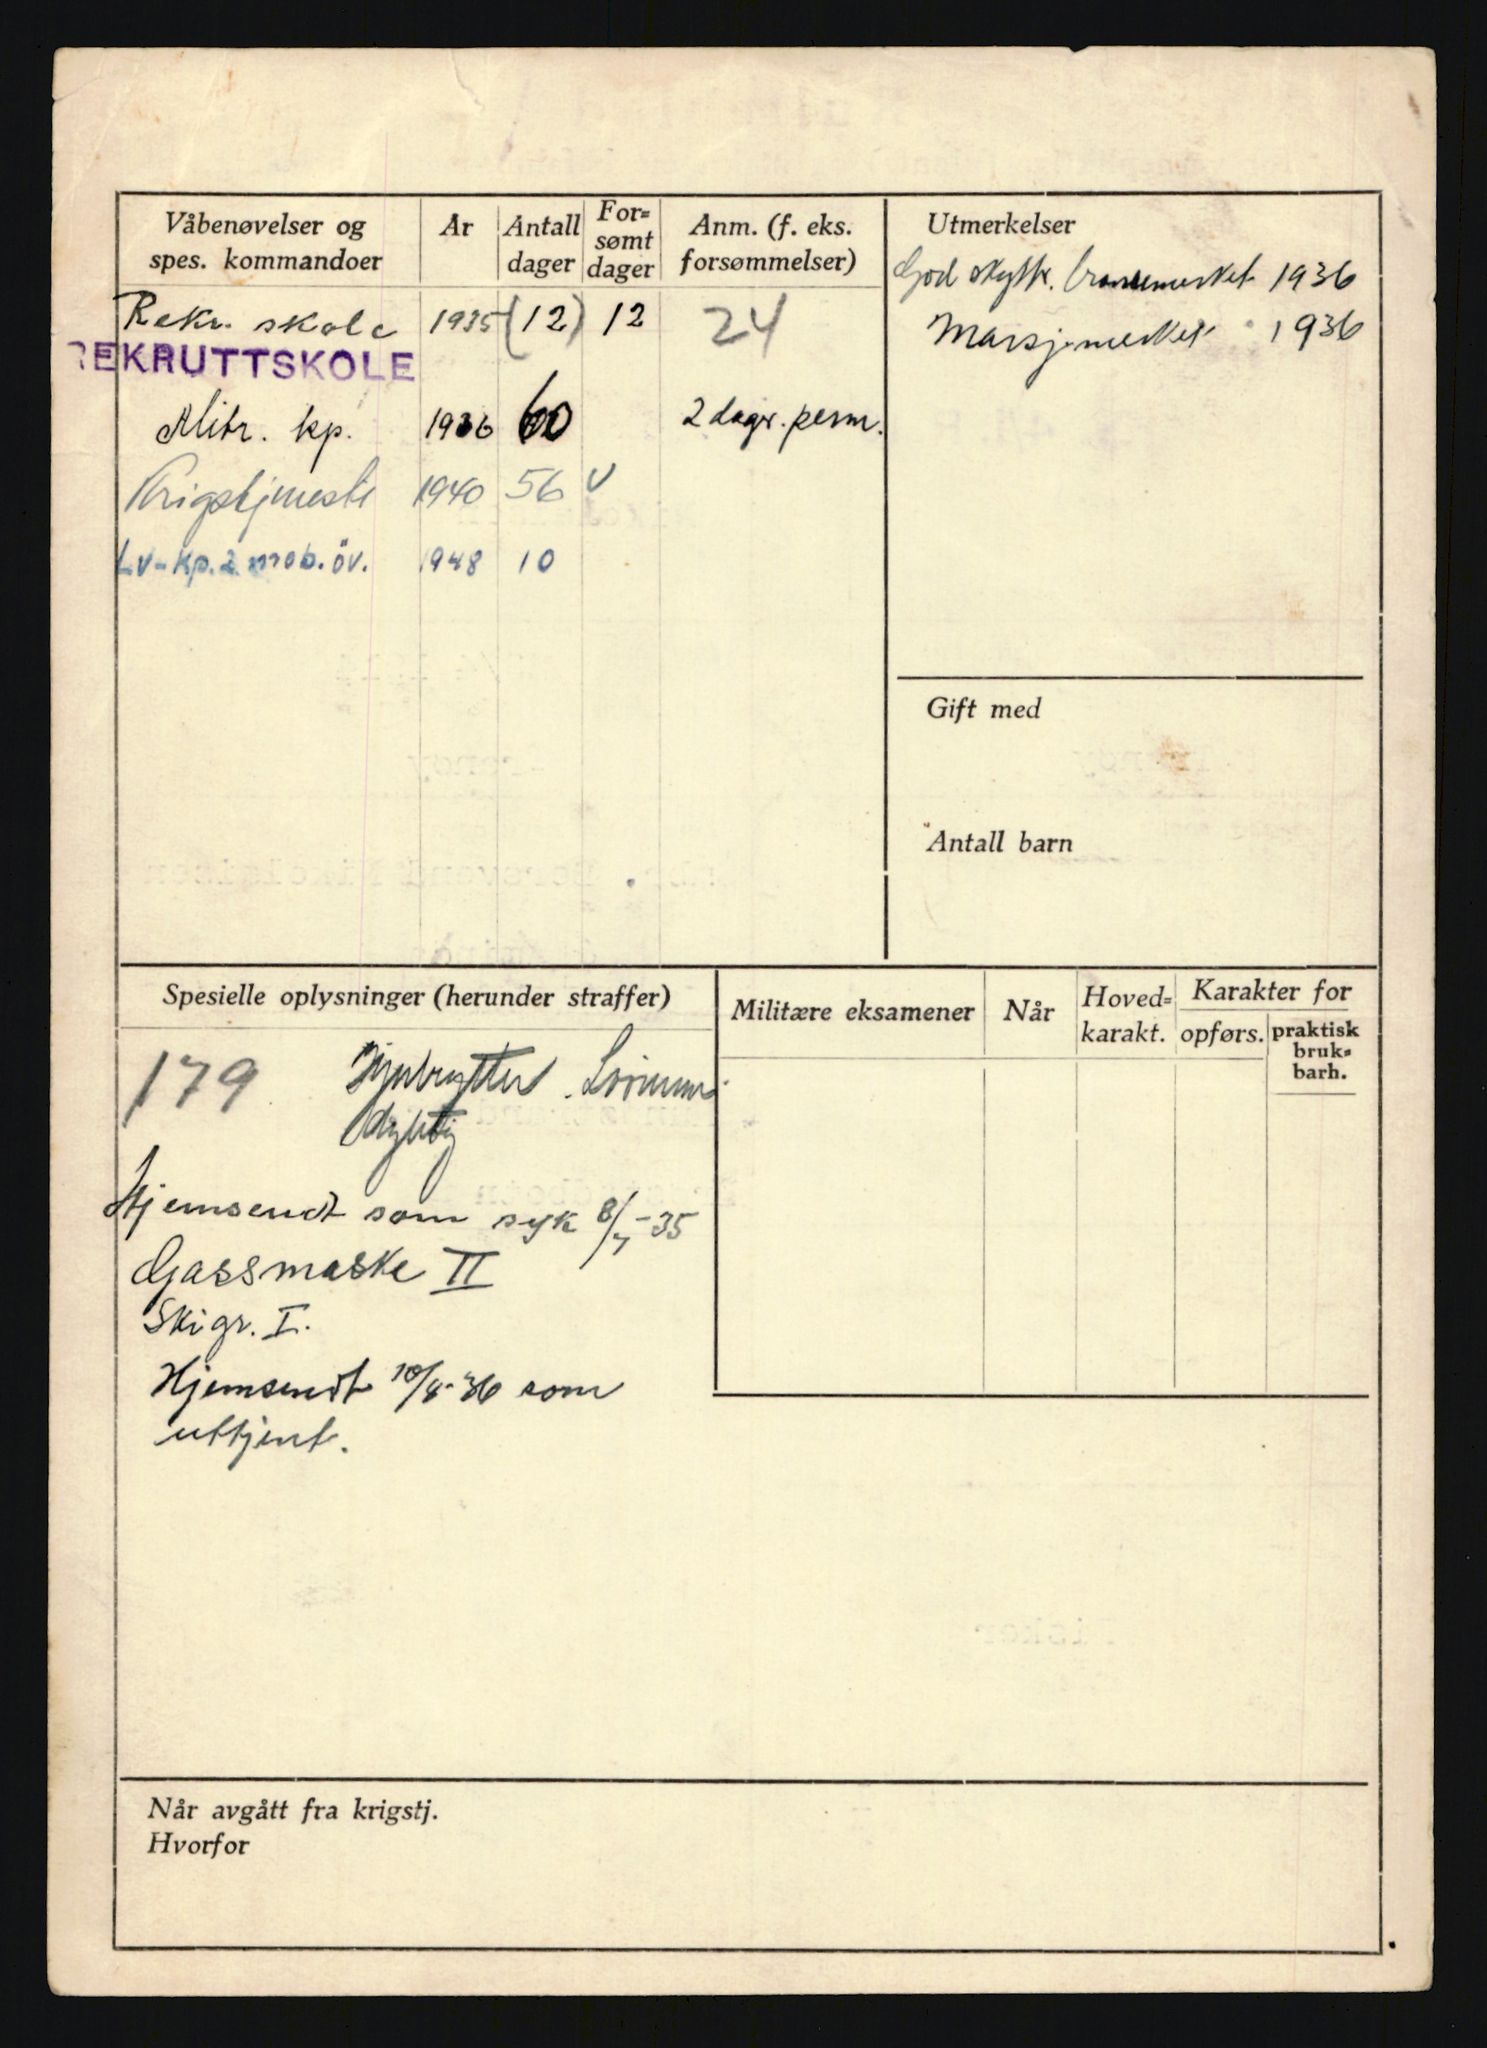 Våbenøvelser og
spes. kommandoer
År
Antall
dager
For=
sømt
dager
Anm. (f. eks.
forsømmelser)
Rekr. skole 1935 (12) 12 24
REKRUTTSKOLE
Mitr. kp. 1936 60 2 dagr. perm.
Krigstjeneste 1940 56 v
Lv-kp. 2 mob. öv. 1948 10
Utmerkelser
God skytter bronsemerket 1936
Marsjmerket 1936
Gift med
Antall barn
Spesielle oplysninger (herunder straffer)
179
Svømme
dyktig
Hjemsendt som syk 8/7-35
Gassmaske II
Skigr. I.
Hjemsendt 10/8-36 som
uttjent.
Militære eksamener
Når
Hoved=
karakt.
Karakter for
opførs.
praktisk
bruk=
barh.
Når avgått fra krigstj.
Hvorfor